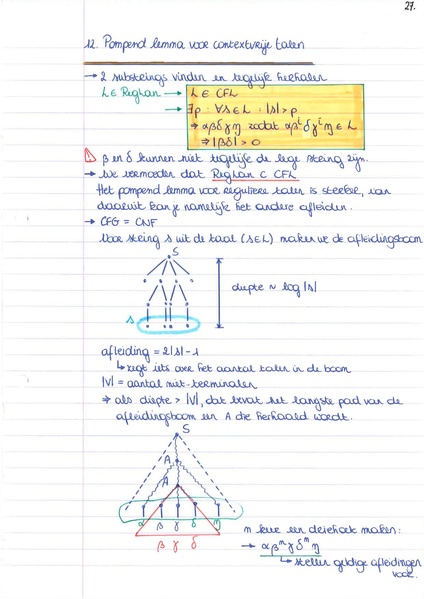 27.
12. Pompend lemma voor contextvrije talen
→ 2 substrings vinden en tegelijk herhalen
L ∈ RegLan → L ∈ CFL
→ ∃p : ∀s ∈ L : |s| > p
⇒ αβδγη zodat αβⁱδγⁱη ∈ L
⇒ |βδ| > 0
! β en δ kunnen niet tegelijk de lege string zijn.
→ We vermoeden dat RegLan ⊂ CFL
Het pompend lemma voor reguliere talen is sterker, van
daaruit kan je namelijk het andere afleiden.
→ CFG = CNF
Voor string s uit de taal (s∈L) maken we de afleidingsboom
S
diepte ~ log|s|
s
afleiding = 2|s|-1
↳ zegt iets over het aantal talen in de boom
|V| = aantal niet-terminalen
⇒ als diepte > |V|, dat bevat het langste pad van de
afleidingsboom een A die herhaald wordt.
S
A
A
α β γ δ η
β γ δ
m keer een driehoek maken:
⇒ αβᵐγδᵐη
↳ stellen geldige afleidingen
voor.